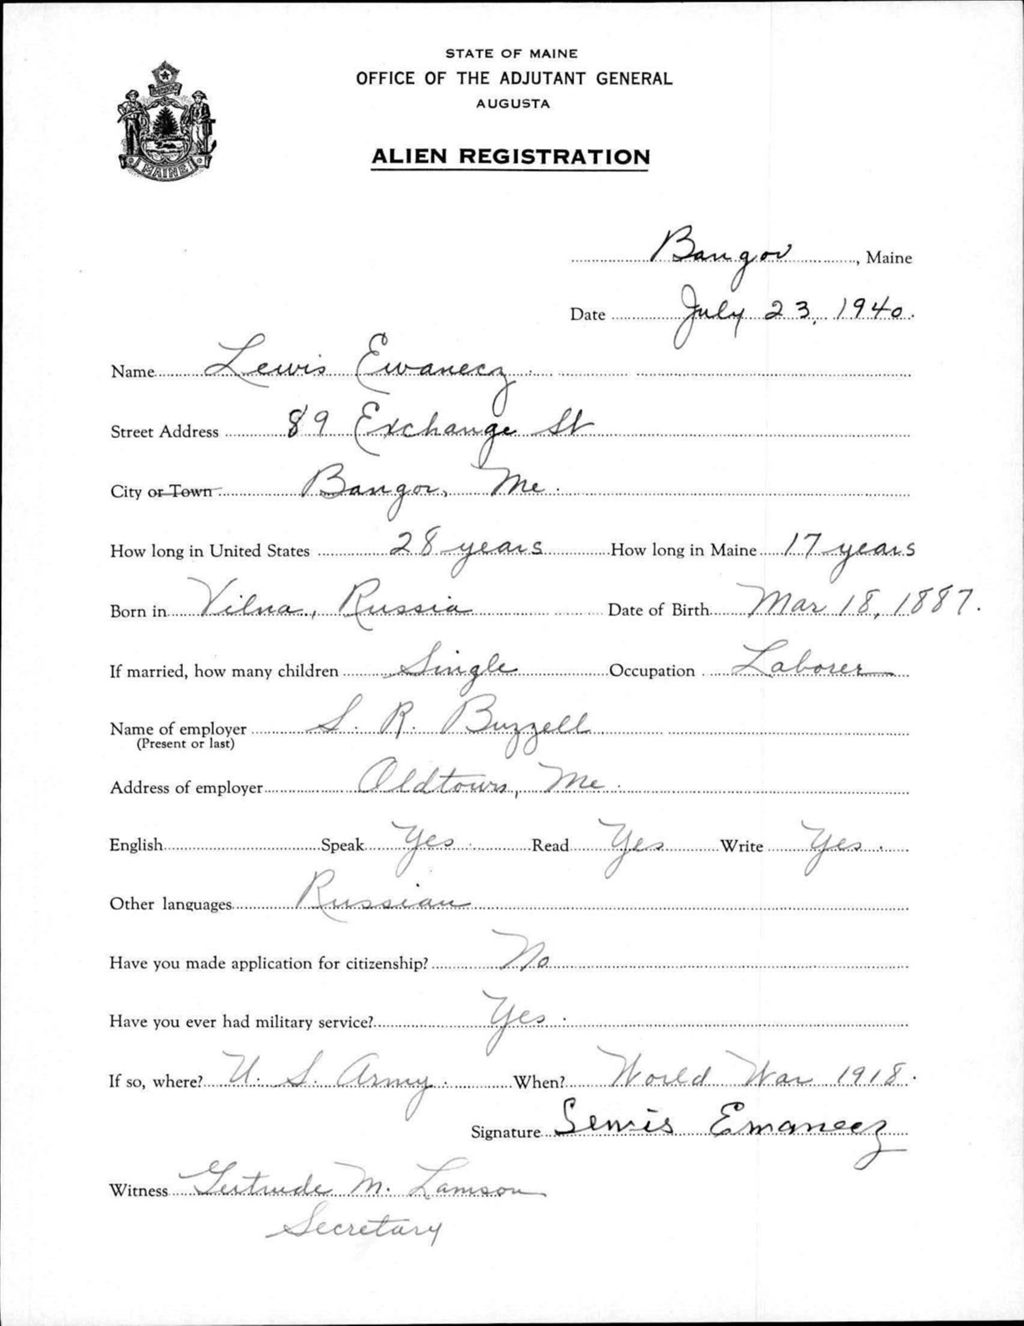 STATE OF MAINE
OFFICE OF THE ADJUTANT GENERAL
AUGUSTA
ALIEN REGISTRATION
MAINE
Bangor, Maine
Date July 23, 1940.
Name Lewis Ewanecz
Street Address 89 Exchange St
City or Town Bangor, Me.
How long in United States 28 years How long in Maine 17 years
Born in Vilna, Russia Date of Birth Mar 18, 1887.
If married, how many children Single Occupation Laborer
Name of employer S. R. Buzzell
(Present or last)
Address of employer Oldtown, Me.
English Speak Yes. Read Yes Write Yes.
Other languages Russian
Have you made application for citizenship? No
Have you ever had military service? Yes.
If so, where? U. S. Army. When? World War 1918.
Signature Lewis Ewanecz
Witness Gertrude M. Lamson
Secretary